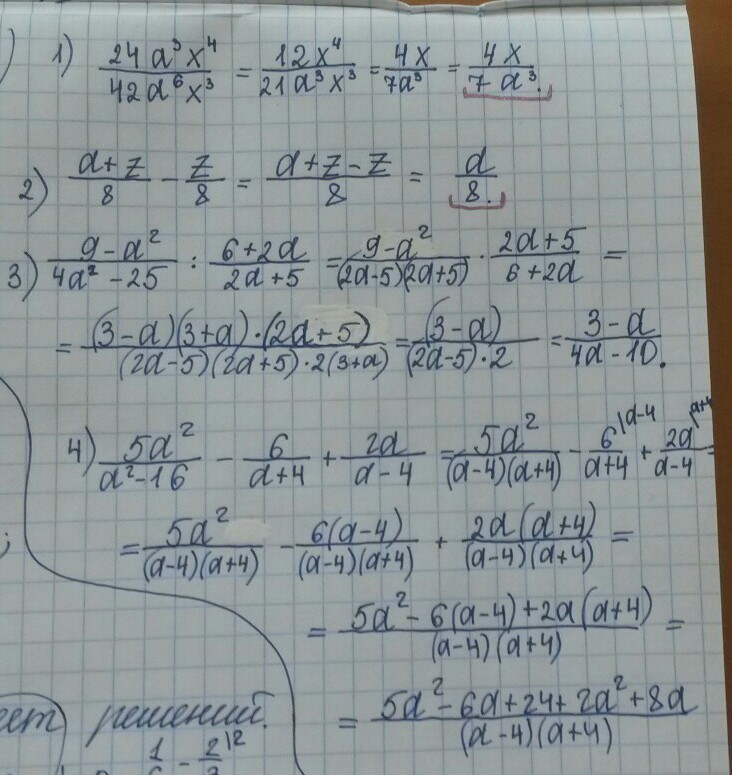 1) \frac{24a³x⁴}{42a⁶x³} = \frac{12x⁴}{21a³x³} = \frac{4x}{7a³} = \frac{4x}{7a³}.
2) \frac{a+z}{8} - \frac{z}{8} = \frac{a+z-z}{8} = \frac{a}{8}.
3) \frac{9-a²}{4a²-25} : \frac{6+2a}{2a+5} = \frac{9-a²}{(2a-5)(2a+5)} · \frac{2a+5}{6+2a} =
= \frac{(3-a)(3+a)·(2a+5)}{(2a-5)(2a+5)·2(3+a)} = \frac{(3-a)}{(2a-5)·2} = \frac{3-a}{4a-10}.
4) \frac{5a²}{a²-16} - \frac{6}{a+4} + \frac{2a}{a-4} = \frac{5a²}{(a-4)(a+4)} - \frac{6^{|a-4}}{a+4} + \frac{2a^{|a+4}}{a-4} =
= \frac{5a²}{(a-4)(a+4)} - \frac{6(a-4)}{(a-4)(a+4)} + \frac{2a(a+4)}{(a-4)(a+4)} =
= \frac{5a²-6(a-4)+2a(a+4)}{(a-4)(a+4)} =
= \frac{5a²-6a+24+2a²+8a}{(a-4)(a+4)}
решений.
\frac{1}{6} - \frac{2^{|2}}{3}